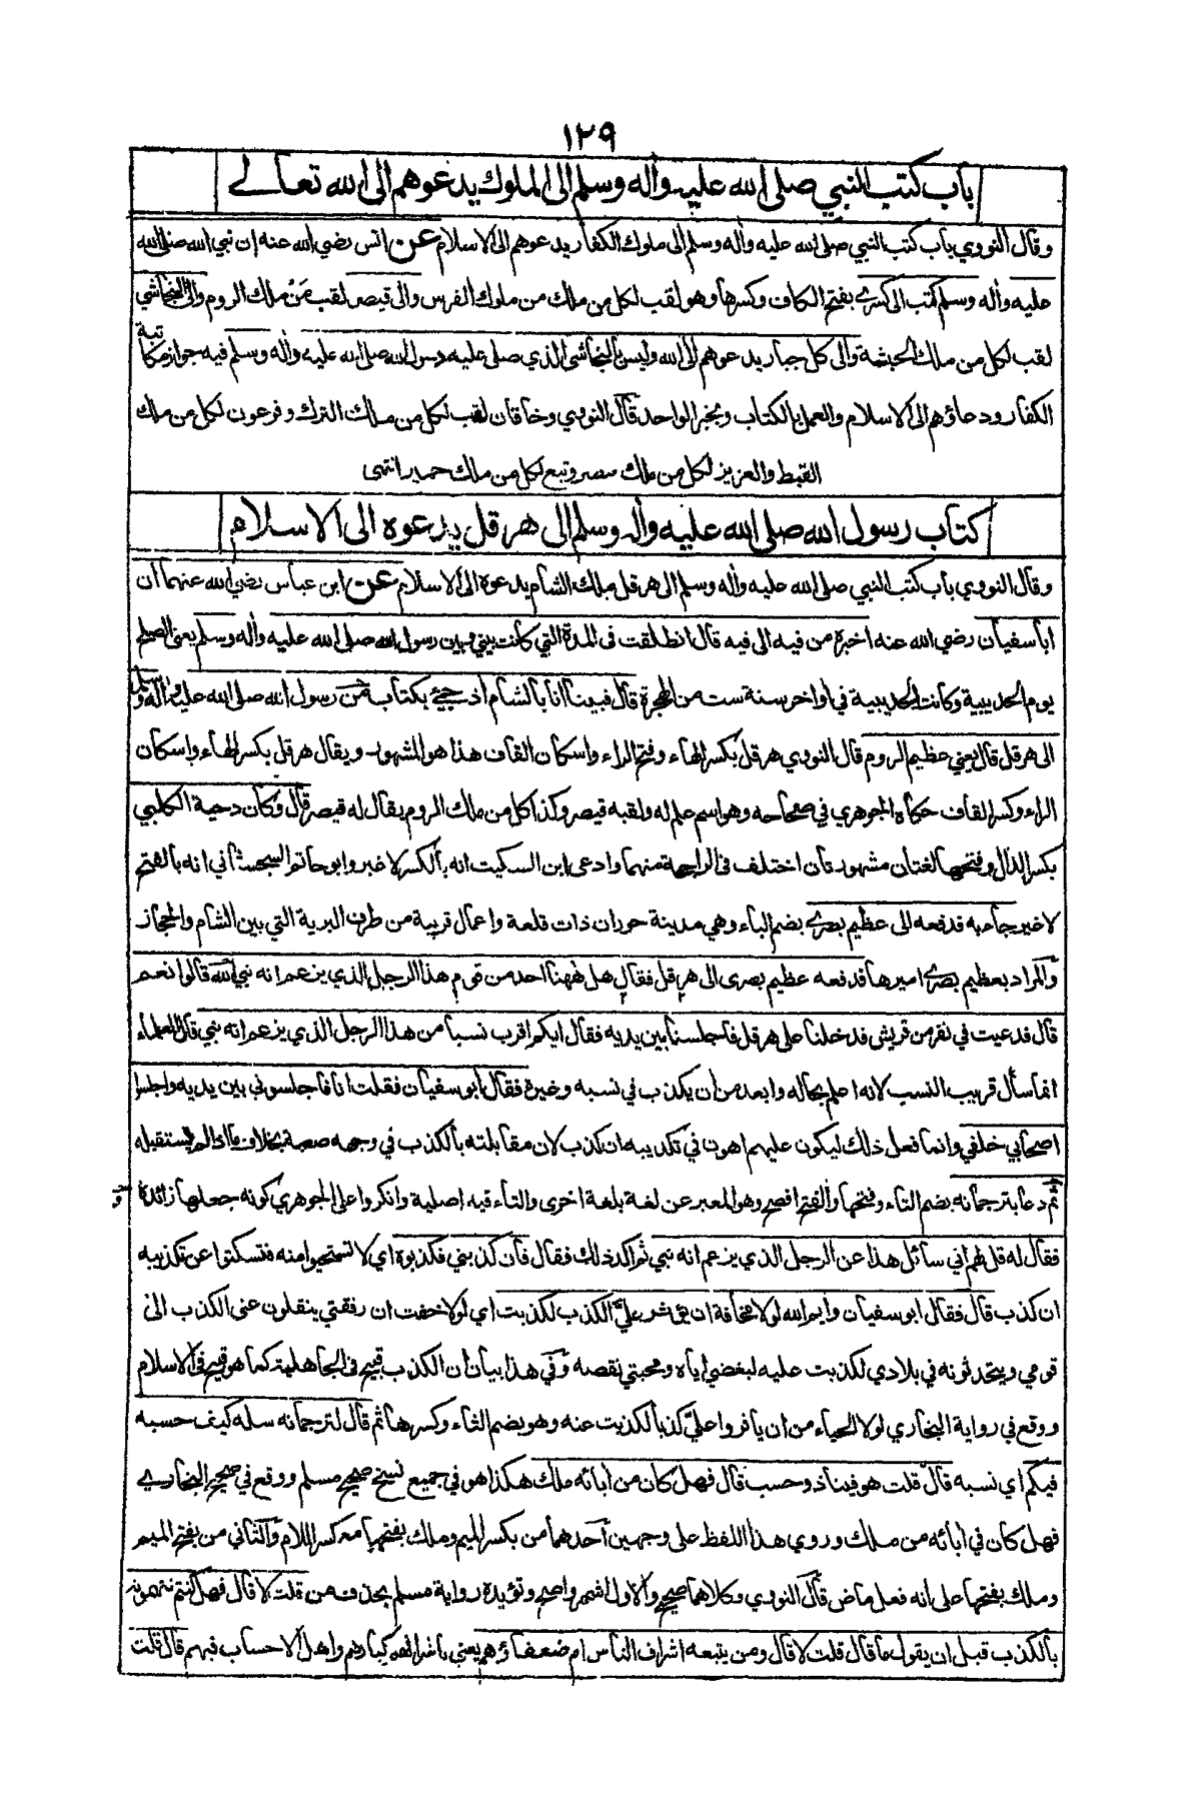 ١٢٩
باب كتب النبي صلى الله عليه وأله وسلم الى الملوك يدعوهم الى الله تعالے
وقال النووي باب كتب النبي صلى الله عليه وأله وسلم الى ملوك الكفار يدعوهم الى الاسلام عن انس رضي الله عنه ان نبي الله صلى الله
عليه وأله وسلم كتب الى كسرے بفتح الكاف وكسرها وهو لقب لكل من ملك من ملوك الفرس والى قيصر لقب من ملك الروم والى النجاشي
لقب لكل من ملك الحبشة والى كل جبار يدعوهم الى الله وليس بالنجاشى الذي صلى عليه رسول الله صلى الله عليه وأله وسلم فيه جواز مكاتبة
الكفار ودعاؤهم الى الاسلام والعمل بالكتاب وبخبر الواحد قال النووي وخاقان لقب لكل من ملك الترك وفرعون لكل من ملك
القبط والعزيز لكل من ملك مصر وتبع لكل من ملك حمير انتهى
كتاب رسول الله صلى الله عليه وأله وسلم الى هرقل يدعوه الى الاسلام
وقال النووي باب كتب النبي صلى الله عليه وأله وسلم الى هرقل ملك الشام يدعوه الى الاسلام عن ابن عباس رضي الله عنهما ان
ابا سفيان رضي الله عنه اخبره من فيه الى فيه قال انطلقت فى المدة التي كانت بيني وبين رسول الله صلى الله عليه وأله وسلم يعنى الصلح
يوم الحديبية وكانت الحديبية في اواخر سنة ست من الهجرة قال فبينا انا بالشام اذ جيئ بكتاب من رسول الله صلى الله عليه وأله وسلم
الى هرقل قال يعني عظيم الروم قال النووي هرقل بكسر الهاء وفتح الراء واسكان القاف هذا هو المشهور ويقال هرقل بكسر الهاء واسكان
الراء وكسر القاف حكاه الجوهري في صحاحه وهو اسم علم له ولقبه قيصر وكذا كل من ملك الروم يقال له قيصر قال وكان دحية الكلبي
بكسر الدال وفتحها لغتان مشهورتان اختلف فى الراجحة منهما وادعى ابن السكيت انه بالكسر لا غير وابو حاتم السجستاني انه بالفتح
لا غير جاء به فدفعه الى عظيم بصرے بضم الباء وهي مدينة حوران ذات قلعة واعمال قريبة من طرف البرية التي بين الشام والحجاز
والمراد بعظيم بصرے اميرها فدفعه عظيم بصرى الى هرقل فقال هرقل هل ههنا احد من قوم هذا الرجل الذي يزعم انه نبي الله قالوا نعم
قال فدعيت في نفر من قريش فدخلنا على هرقل فاجلسنا بين يديه فقال ايكم اقرب نسبا من هذا الرجل الذي يزعم انه نبي قال العلماء
انما سأل قريب النسب لانه اعلم بحاله وابعد من ان يكذب في نسبه وغيره فقال ابو سفيان فقلت انا فاجلسوني بين يديه واجلسوا
اصحابي خلفي وانما فعل ذلك ليكون عليهم اهون في تكذيبه ان كذب لان مقابلته بالكذب في وجهه صعبة بخلاف ما اذا لم يستقبله
ثم دعا بترجمانه بضم التاء وفتحها والفتح افصح وهو المعبر عن لغة بلغة اخرى والتاء فيه اصلية وانكروا على الجوهري كونه جعلها زائدة
فقال له قل لهم اني سائل هذا عن الرجل الذي يزعم انه نبي ثم اكد ذلك فقال فان كذبني فكذبوه اي لا تستحيوا منه فتسكتوا عن تكذيبه
ان كذب قال فقال ابو سفيان وايم الله لولا مخافة ان يؤثر عليّ الكذب لكذبت اي لولا خفت ان رفقتي ينقلون عنى الكذب الى
قومي ويتحدثونه في بلادي لكذبت عليه لبغضي اياه ومحبتي نقصه وفي هذا بيان ان الكذب قبيح فى الجاهلية كما هو قبيح فى الاسلام
ووقع في رواية البخاري لولا الحياء من ان يأثروا عليّ كذبا لكذبت عنه وهو بضم الثاء وكسرها ثم قال لترجمانه سله كيف حسبه
فيكم اي نسبه قال قلت هو فينا ذو حسب قال فهل كان من آبائه ملك هكذا هو في جميع نسخ صحيح مسلم ووقع في صحيح البخارے
فهل كان في أبائه من ملك وروي هذا اللفظ على وجهين أحدهما من بكسر الميم وملك بفتحها مع كسر اللام والثاني من بفتح الميم
وملك بفتحها على انه فعل ماض قال النووي وكلاهما صحيح والاول اشهر واصح وتؤيده رواية مسلم بحذف من قلت لا قال فهل كنتم تتهمونه
بالكذب قبل ان يقول ما قال قلت لا قال ومن يتبعه اشراف الناس ام ضعفاؤهم يعني باشرافهم كبارهم واهل الاحساب فيهم قال قلت